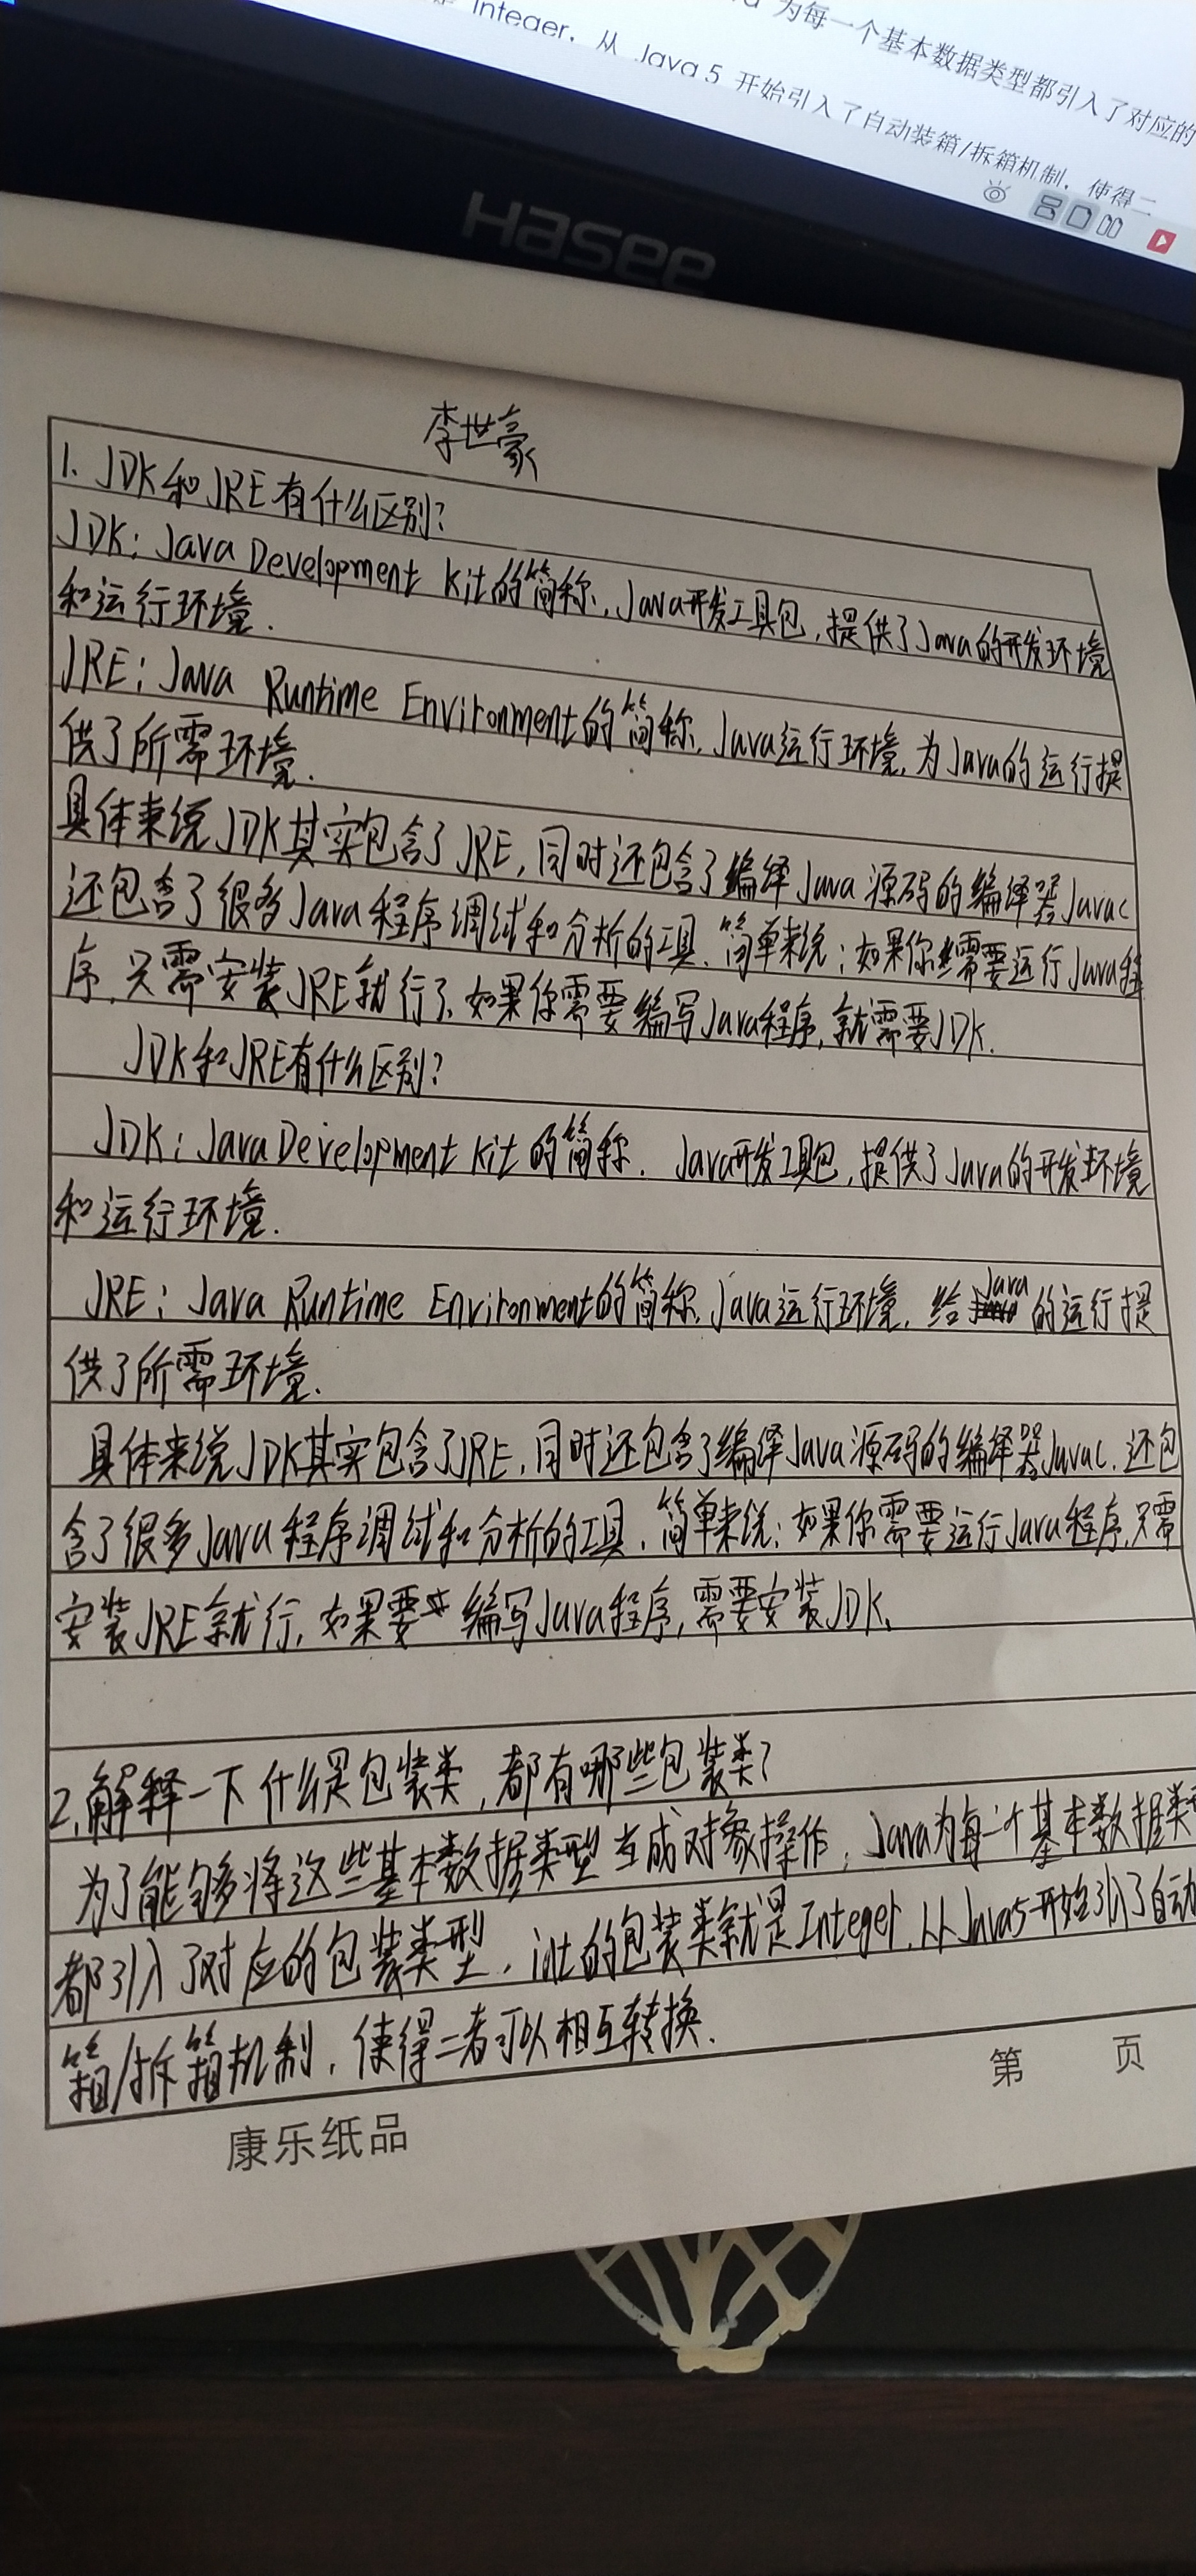 为每一个基本数据类型都引入了对应的
Integer，从 Java 5 开始引入了自动装箱/拆箱机制，使得二
Hasee
李世豪
1. JDK和JRE有什么区别?
JDK: Java Development Kit的简称, Java开发工具包, 提供了Java的开发环境
和运行环境.
JRE: Java Runtime Environment的简称, Java运行环境, 为Java的运行提
供了所需环境.
具体来说JDK其实包含了JRE, 同时还包含了编译Java源码的编译器Javac
还包含了很多Java程序调试和分析的工具. 简单来说: 如果你需要运行Java程
序, 只需安装JRE就行了, 如果你需要编写Java程序, 就需要JDK.
JDK和JRE有什么区别?
JDK: Java Development Kit的简称. Java开发工具包, 提供了Java的开发环境
和运行环境.
JRE: Java Runtime Environment的简称, Java运行环境, 给Java的运行提
供了所需环境.
具体来说JDK其实包含了JRE, 同时还包含了编译Java源码的编译器Javac. 还包
含了很多Java程序调试和分析的工具. 简单来说: 如果你需要运行Java程序, 只需
安装JRE就行, 如果要编写Java程序, 需要安装JDK.
2. 解释一下什么是包装类, 都有哪些包装类?
为了能够将这些基本数据类型当成对象操作, Java为每一个基本数据类型
都引入了对应的包装类型, int的包装类就是Integer, 从Java5开始引入了自动
箱/拆箱机制, 使得二者可以相互转换.
第 页
康乐纸品